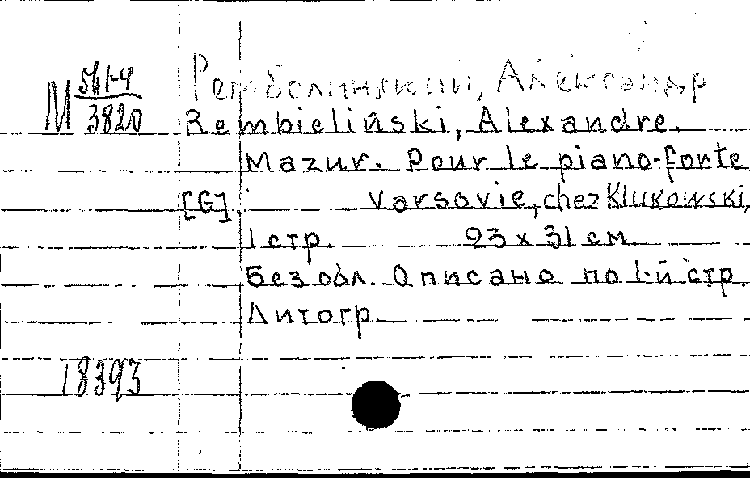 М 561-4
3820
Рембелинский, Александр
Rembieliński, Alexandre.
Mazur. Pour le piano-forte
[G]. Varsovie, chez Klukowski,
1 стр. 23 x 31 см.
Без обл. Описано по 1-й стр.
Литогр.
18393